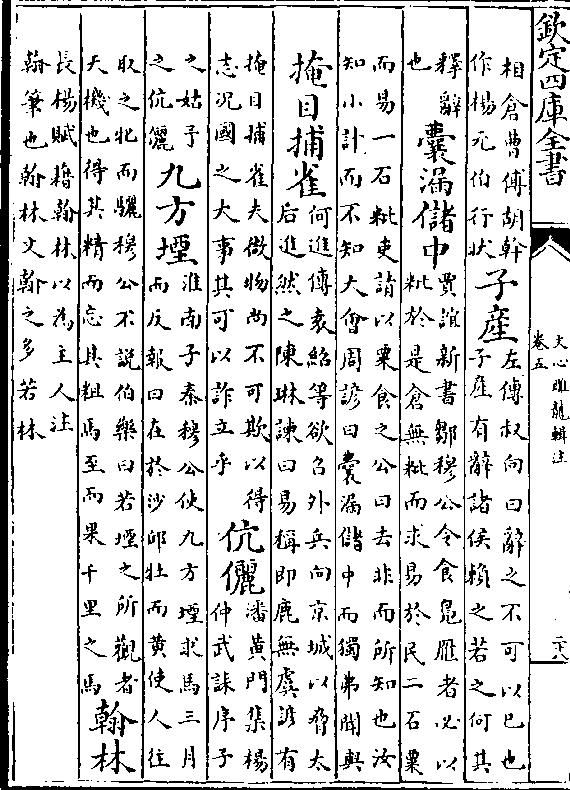 欽定四庫全書
文心雕龍輯注
卷五
二十八
相倉曹傅胡幹
作楊元伯行狀
子產
左傳叔向曰辭之不可以已也
子產有辭諸侯賴之若之何其
釋辭
也
囊漏儲中
賈誼新書鄒穆公令食鳧雁者必以
粃於是倉無粃而求易於民二石粟
而易一石粃吏請以粟食之公曰去非而所知也汝
知小計而不知大會周諺曰囊漏儲中而獨弗聞與
掩目捕雀
何進傳袁紹等欲召外兵向京城以脅太
后進然之陳琳諫曰易稱即鹿無虞諺有
掩目捕雀夫微物尚不可欺以得
志况國之大事其可以詐立乎
伉儷
潘黃門集楊
仲武誄序子
之姑予
之伉儷
九方堙
淮南子秦穆公使九方堙求馬三月
而反報曰在於沙邱牡而黃使人往
取之牝而驪穆公不說伯樂曰若堙之所觀者
天機也得其精而忘其粗馬至而果千里之馬
翰林
長楊賦藉翰林以為主人注
翰筆也翰林文翰之多若林